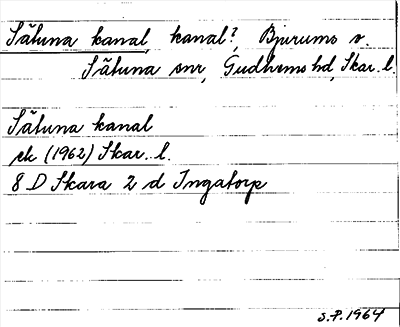 Sätuna kanal, kanal?, Bjurums v.
Sätuna snr, Gudhems hd, Skar. l.
Sätuna kanal
ek (1962) Skar. l.
8 D Skara 2 d Ingatorp
S.P. 1964